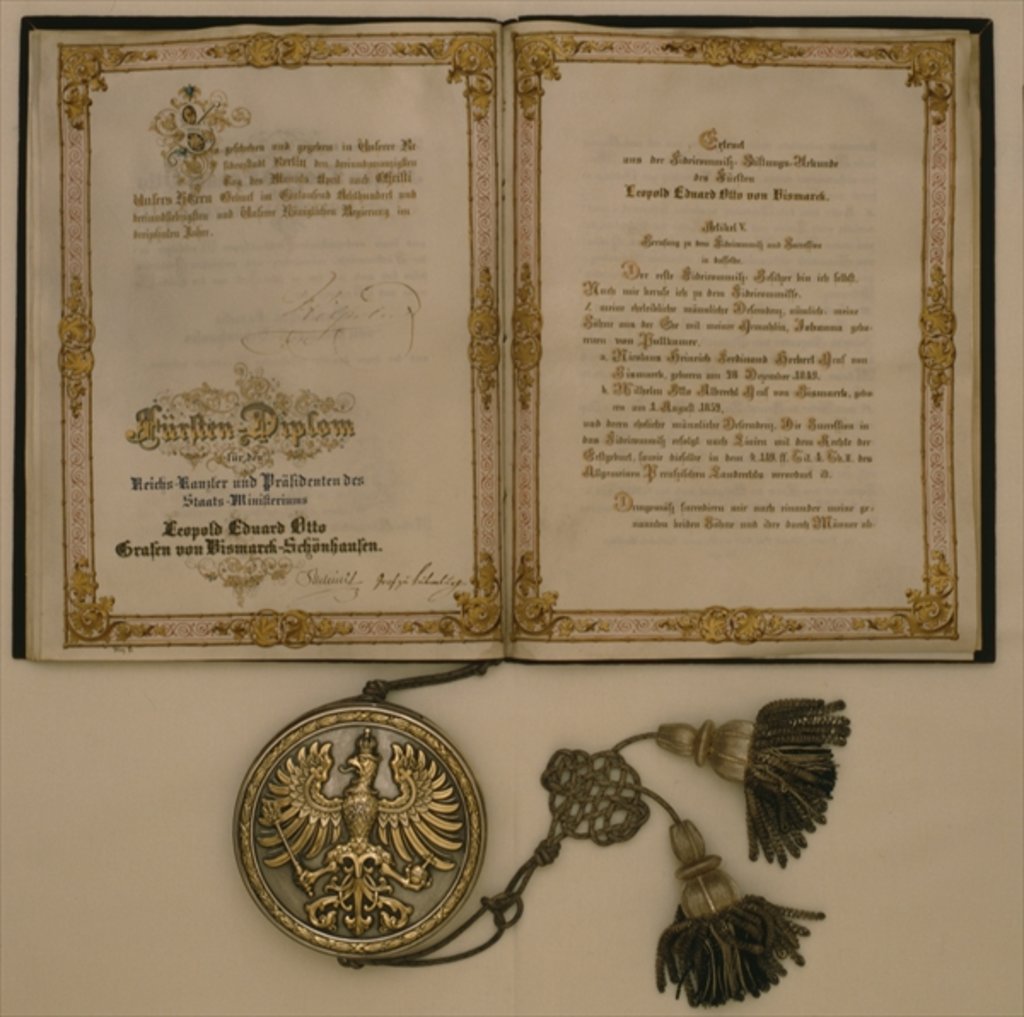 So geschehen und gegeben in Unserer Re-
sidenzstadt Berlin den dreiundzwanzigsten
Tag des Monats April nach Christi
Unsers Herrn Geburt im Eintausend Achthundert und
dreiundsiebzigsten und Unserer Königlichen Regierung im
dreizehnten Jahre.
Fürsten-Diplom
für den
Reichs-Kanzler und Präsidenten des
Staats-Ministeriums
Leopold Eduard Otto
Grafen von Bismarck-Schönhausen.
Extract
aus der Fideicommiß-Stiftungs-Urkunde
des Fürsten
Leopold Eduard Otto von Bismarck.
Artikel V.
Berufung zu dem Fideicommiß und Succession
in dasselbe.
Der erste Fideicommiß-Besitzer bin ich selbst.
Nach mir berufe ich zu dem Fideicommisse.
1. meine eheleibliche männliche Descendenz, nämlich: meine
Söhne aus der Ehe mit meiner Gemahlin, Johanna gebo-
renen von Puttkamer.
a. Nicolaus Heinrich Ferdinand Herbert Graf von
Bismarck, geboren am 28 Dezember 1849.
b. Wilhelm Otto Albrecht Graf von Bismarck, gebo-
ren am 1. August 1852,
und deren eheliche männliche Descendenz. Die Succession in
das Fideicommiß erfolgt nach Linien mit dem Rechte der
Erstgeburt, sowie dieselbe in dem § 149. ff. Tit. 4. Th. II. des
Allgemeinen Preußischen Landrechts verordnet ist.
Demgemäß succediren mir nach einander meine ge-
nannten beiden Söhne und ihre durch Männer ab-